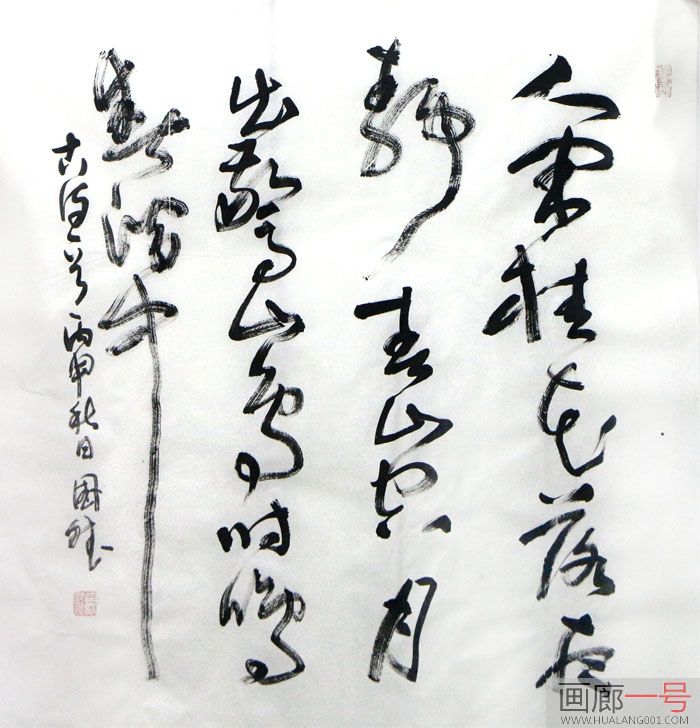 人闲桂花落夜
静春山空月
出驚山鸟时鸣
春涧中
古诗一首丙申秋日国
画廊一号
WWW.HUALANG001.COM